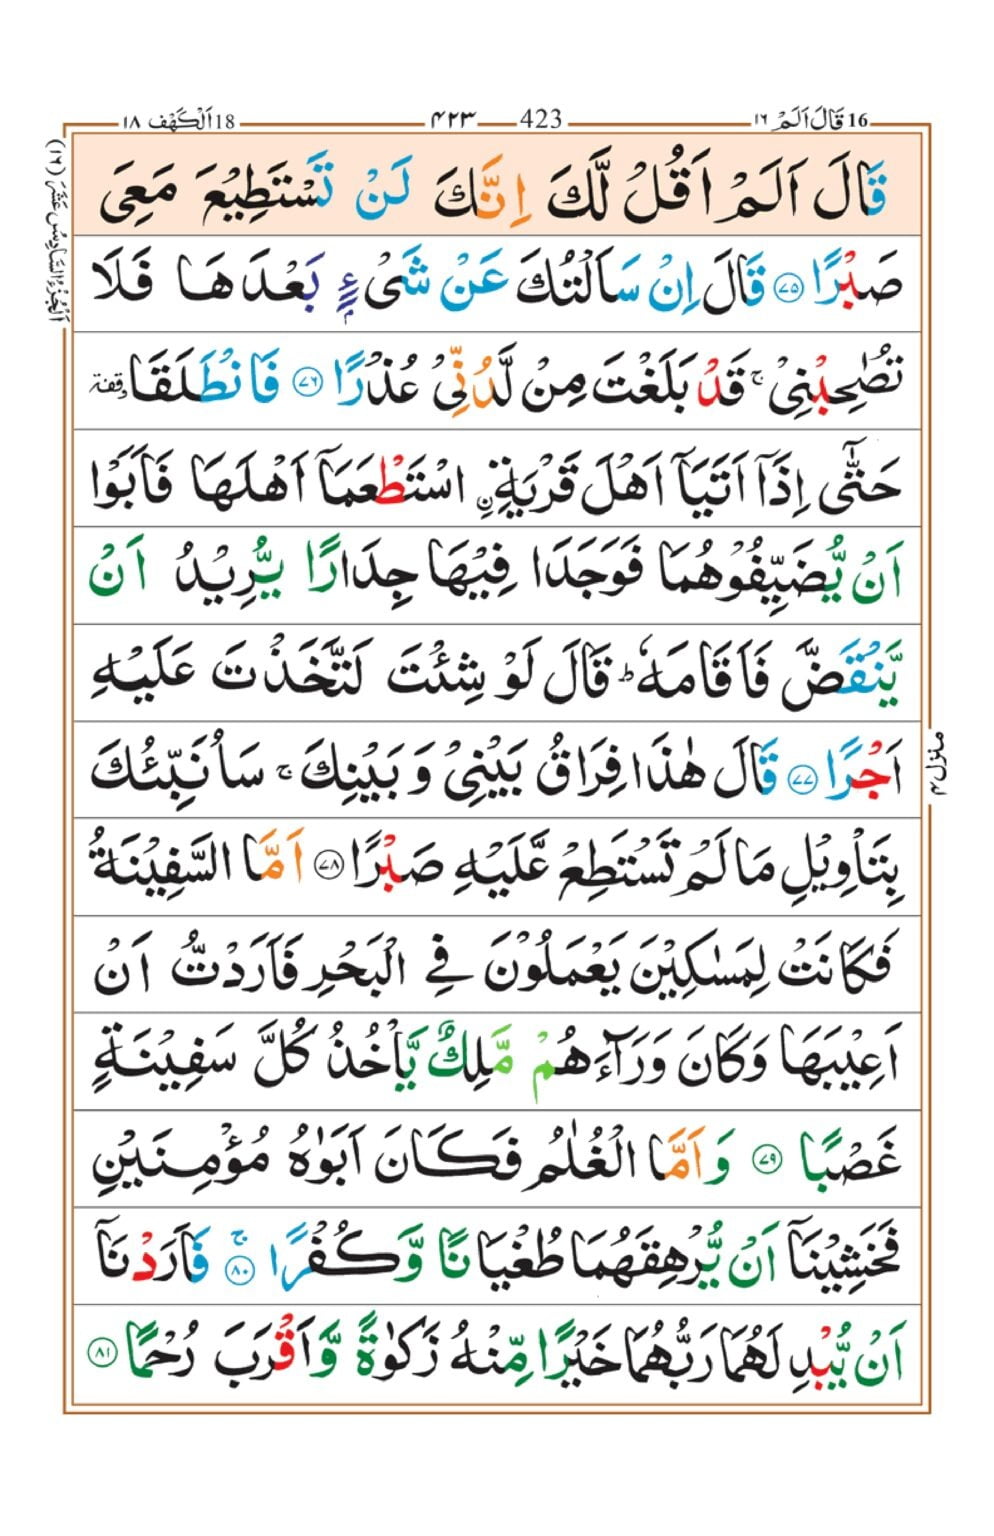 16 قَالَ اَلَمْ ١٦ 423 ٤٢٣ 18 اَلْكَهْف ١٨
اَلْجُزْءُ السَّادِسُ عَشَرَ (١٦)
قَالَ اَلَمْ اَقُلْ لَّكَ اِنَّكَ لَنْ تَسْتَطِيْعَ مَعِیَ
صَبْرًا ۝٧٥ قَالَ اِنْ سَاَلْتُكَ عَنْ شَیْءٍۭ بَعْدَهَا فَلَا
تُصٰحِبْنِیْ ۚ قَدْ بَلَغْتَ مِنْ لَّدُنِّیْ عُذْرًا ۝٧٦ فَانْطَلَقَا وقفة
حَتّٰۤى اِذَاۤ اَتَيَاۤ اَهْلَ قَرْيَةِ ۟اِ۟سْتَطْعَمَاۤ اَهْلَهَا فَاَبَوْا
اَنْ يُّضَيِّفُوْهُمَا فَوَجَدَا فِيْهَا جِدَارًا يُّرِيْدُ اَنْ
يَّنْقَضَّ فَاَقَامَهٗ ؕ قَالَ لَوْ شِئْتَ لَتَّخَذْتَ عَلَيْهِ
اَجْرًا ۝٧٧ قَالَ هٰذَا فِرَاقُ بَيْنِیْ وَ بَيْنِكَ ۚ سَاُنَبِّئُكَ
بِتَاْوِيْلِ مَا لَمْ تَسْتَطِعْ عَّلَيْهِ صَبْرًا ۝٧٨ اَمَّا السَّفِيْنَةُ
فَكَانَتْ لِمَسٰكِيْنَ يَعْمَلُوْنَ فِی الْبَحْرِ فَاَرَدْتُّ اَنْ
اَعِيْبَهَا وَكَانَ وَرَآءَهُمْ مَّلِكٌ يَّاْخُذُ كُلَّ سَفِيْنَةٍ
غَصْبًا ۝٧٩ وَاَمَّا الْغُلٰمُ فَكَانَ اَبَوٰهُ مُؤْمِنَيْنِ
فَخَشِيْنَاۤ اَنْ يُّرْهِقَهُمَا طُغْيَانًا وَّكُفْرًا ۝٨٠ۚ فَاَرَدْنَاۤ
اَنْ يُّبْدِ لَهُمَا رَبُّهُمَا خَيْرًا مِّنْهُ زَكٰوةً وَّاَقْرَبَ رُحْمًا ۝٨١
منزل ٤